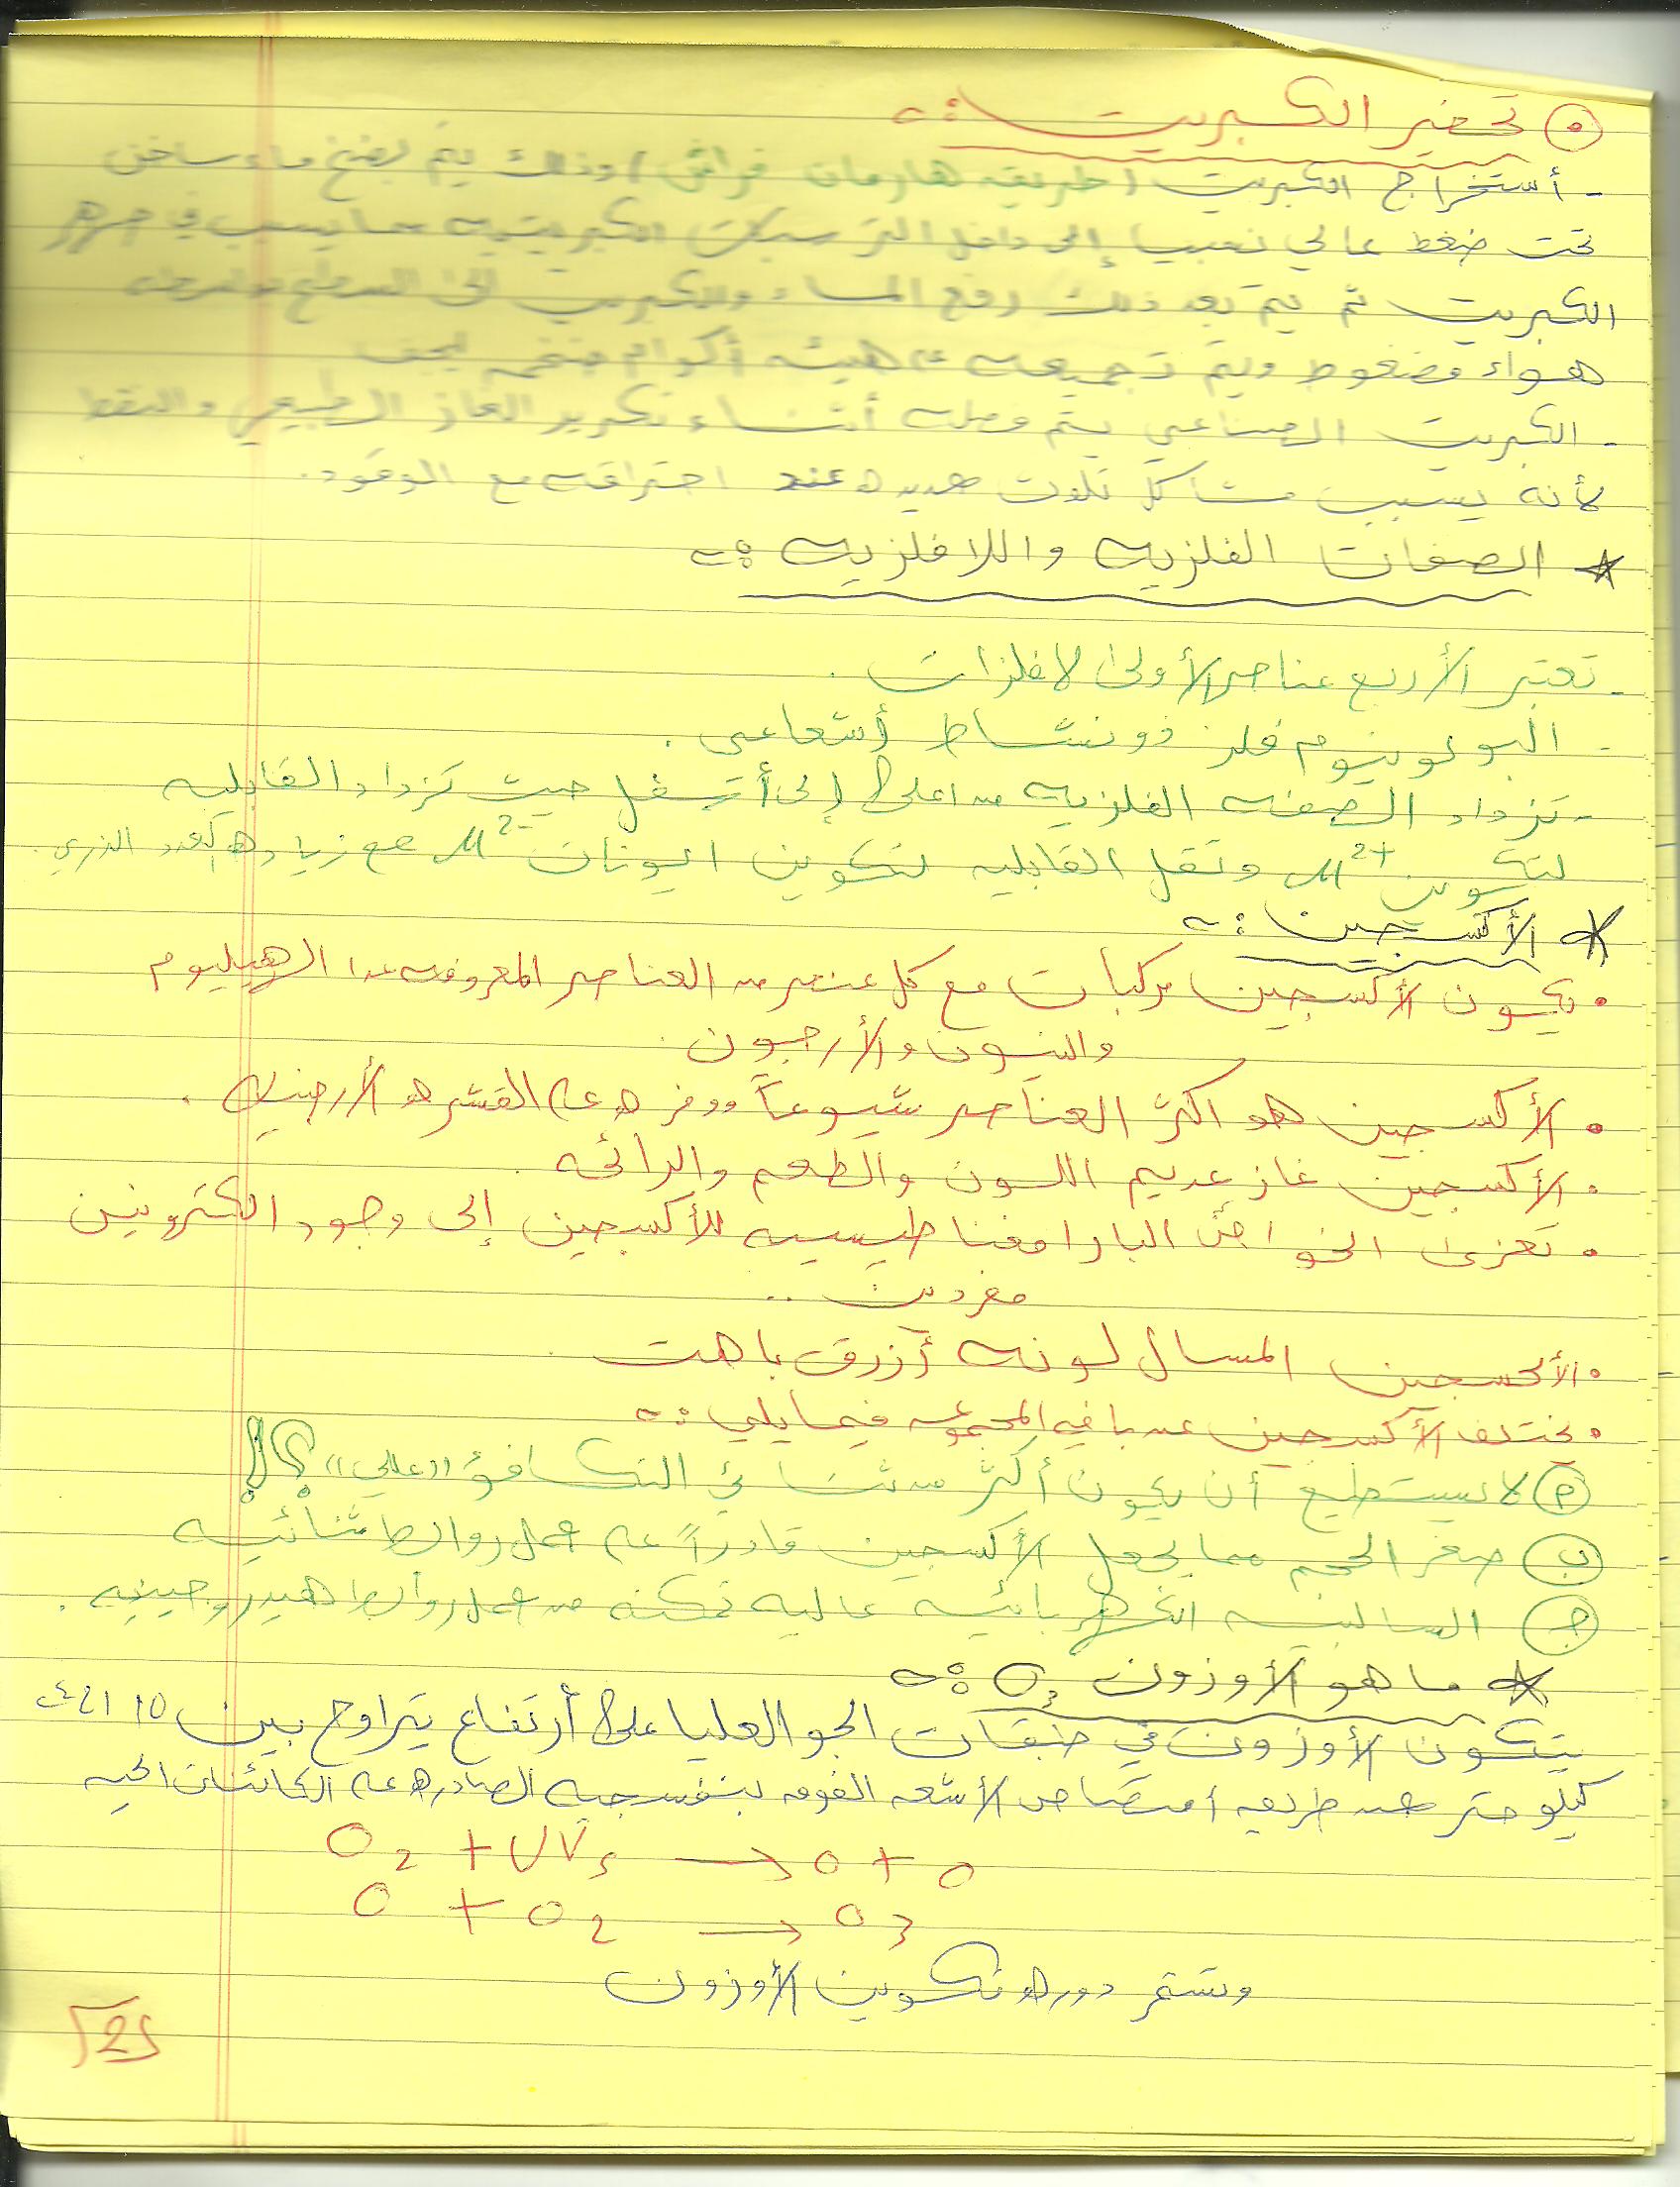 ⊙ تحضير الكبريت :~
- أستخراج الكبريت (طريقه هارمان فراش) وذلك يتم بضخ ماء ساخن
تحت ضغط عالي نسبيا إلى داخل الترسبات الكبريتيه مما يسبب في صهر
الكبريت ثم يتم بعد ذلك رفع الماء والكبريت الى السطح بواسطه
هواء مضغوط ويتم تجميعه على هيئه أكوام ضخمه ليجف
- الكبريت الصناعي يتم فصله أثناء تكرير الغاز الطبيعي والنفط
لأنه يسبب مشاكل تلوث عديده عند احتراقه مع الوقود.
* الصفات الفلزيه واللافلزيه :~
- تعتبر الأربع عناصر الأولى لافلزات .
- البولونيوم فلز ذو نشاط إشعاعي .
- تزداد الصفه الفلزيه من اعلى إلى أسفل حيث تزداد القابليه
لتكوين M²⁺ وتقل القابليه لتكوين ايونات M²⁻ مع زياده العدد الذري .
* الأكسجين :~
• يكون الأكسجين مركبات مع كل عنصر من العناصر المعروفه عدا الهيليوم
والنيون والأرجون .
• الأكسجين هو اكثر العناصر شيوعاً ووفره على القشره الأرضيه .
• الأكسجين غاز عديم اللون والطعم والرائحه .
• تعزى الخواص البارامغناطيسيه للأكسجين إلى وجود الكترونين
مفردين ..
• الأكسجين المسال لونه أزرق باهت .
• يختلف الأكسجين عن باقي المجموعه فيما يلي :~
(م) لا يستطيع أن يكون أكثر من ثنائي التكافؤ ((علل)) ؟!
(ب) صغر الحجم مما يجعل الأكسجين قادراً على عمل روابط ثنائيه
(جـ) السالبيه الكهربائيه عاليه تمكنه من عمل روابط هيدروجينيه .
* ما هو الأوزون O₃ :~
يتكون الأوزون في طبقات الجو العليا على أرتفاع يتراوح بين 15
كيلو متر عن طريق أمتصاص الأشعه الفوق بنفسجيه الصادره عن الكائنات الحيه
O₂ + UV → O + O
O + O₂ → O₃
وتستمر دوره تكوين الأوزون